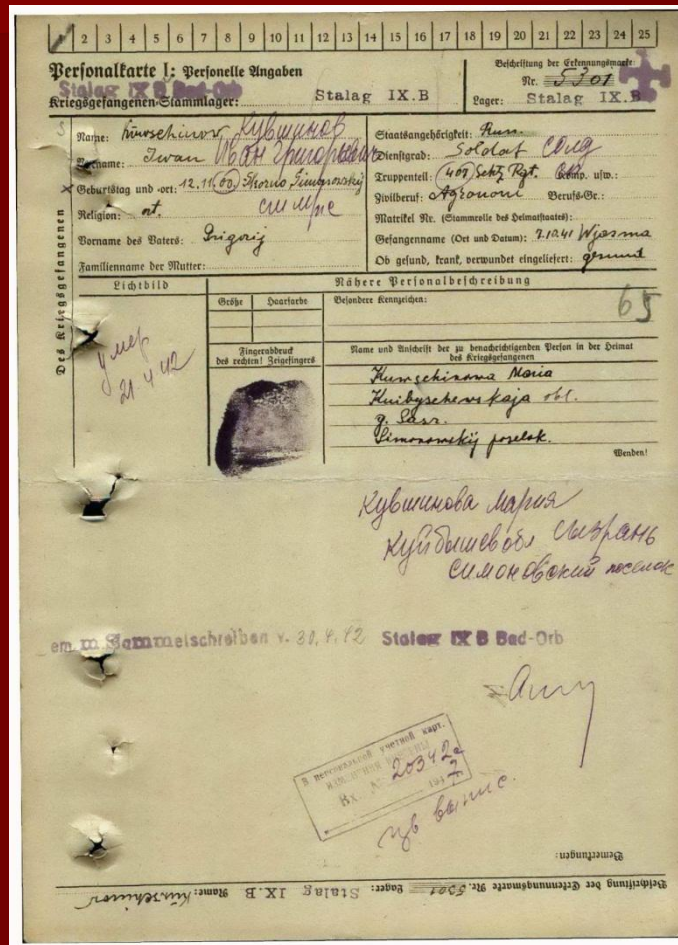 1 2 3 4 5 6 7 8 9 10 11 12 13 14 15 16 17 18 19 20 21 22 23 24 25
Personalkarte I: Personelle Angaben
Stalag IX B Bad-Orb
Kriegsgefangenen-Stammlager: Stalag IX.B
Beschriftung der Erkennungsmarke
Nr. 5301
Lager: Stalag IX.B
Des Kriegsgefangenen
Name: Kuwschinow Кувшинов
Vorname: Iwan Иван Григорьевич
Geburtstag und -ort: 12.11.00.
Religion: ort.
Vorname des Vaters: Grigorij
Familienname der Mutter:
Staatsangehörigkeit: Russ.
Dienstgrad: Soldat солд
Truppenteil: Rgt. Komp. usw.:
Zivilberuf: Agronom Berufs-Gr.:
Matrikel Nr. (Stammrolle des Heimatstaates):
Gefangennahme (Ort und Datum): 7.10.41 Wjasma
Ob gesund, krank, verwundet eingeliefert: gesund
Lichtbild
умер
21 4 42
Nähere Personalbeschreibung
Größe Haarfarbe Besondere Kennzeichen:
65
Fingerabdruck
des rechten! Zeigefingers
Name und Anschrift der zu benachrichtigenden Person in der Heimat
des Kriegsgefangenen
Kuwschinowa Maria
Kuibyschewskaja obl.
Simonowskij poselok.
Wenden!
Кувшинова Мария
Куйбышев обл Сызрань
Симоновский поселок
em m Sammelschreiben v. 30.4.42 Stalag IX B Bad-Orb
В персональной учетной карт.
Вх. № 20342
Bemerkungen:
Beschriftung der Erkennungsmarke Nr. 5301 Lager: Stalag IX.B Name: Kuwschinow